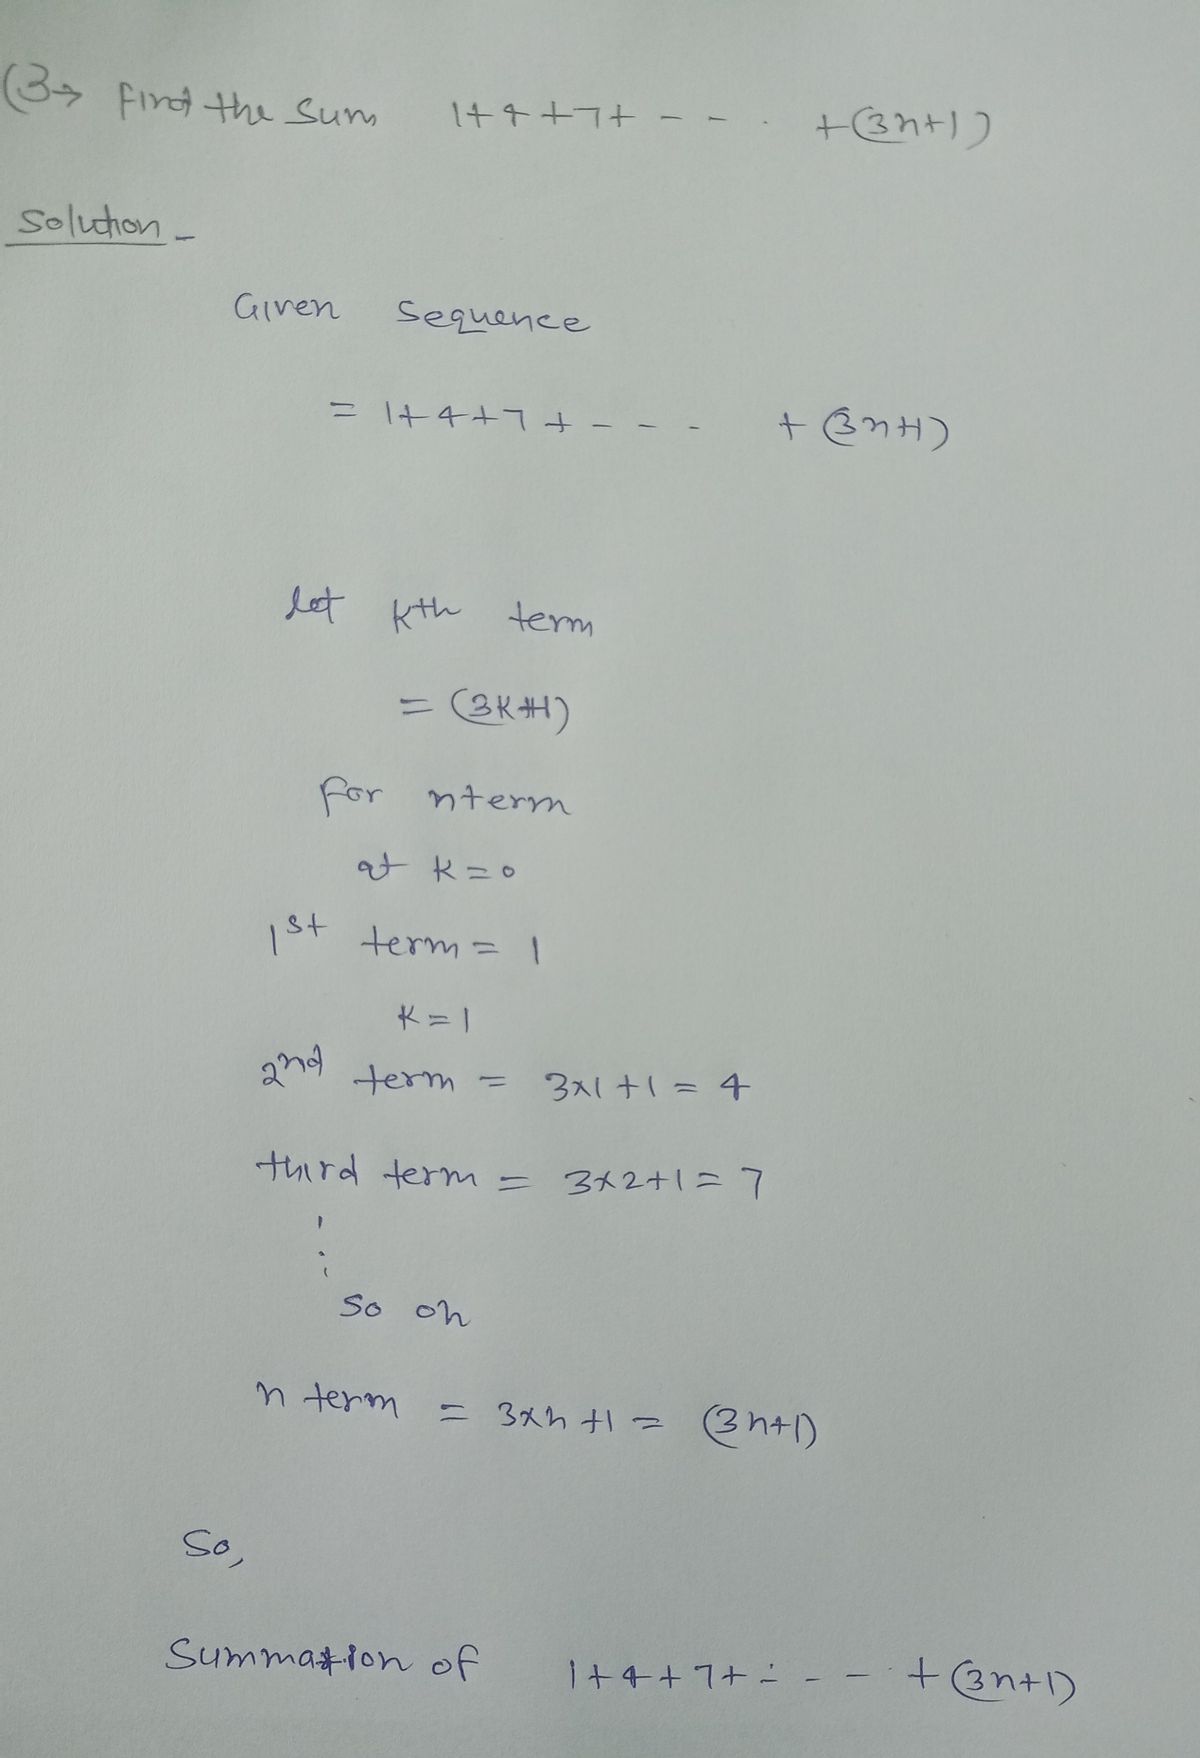 (3→ find the sum 1+4+7+ - - . +(3n+1)
Solution -
Given sequence
= 1+4+7+ - - - +(3n+1)
let kth term
= (3k+1)
for nterm
at k=0
1st term = 1
k=1
2nd term = 3×1+1=4
third term = 3×2+1=7
⋮
so on
n term = 3×n+1= (3n+1)
So,
Summation of 1+4+7+ - - - +(3n+1)